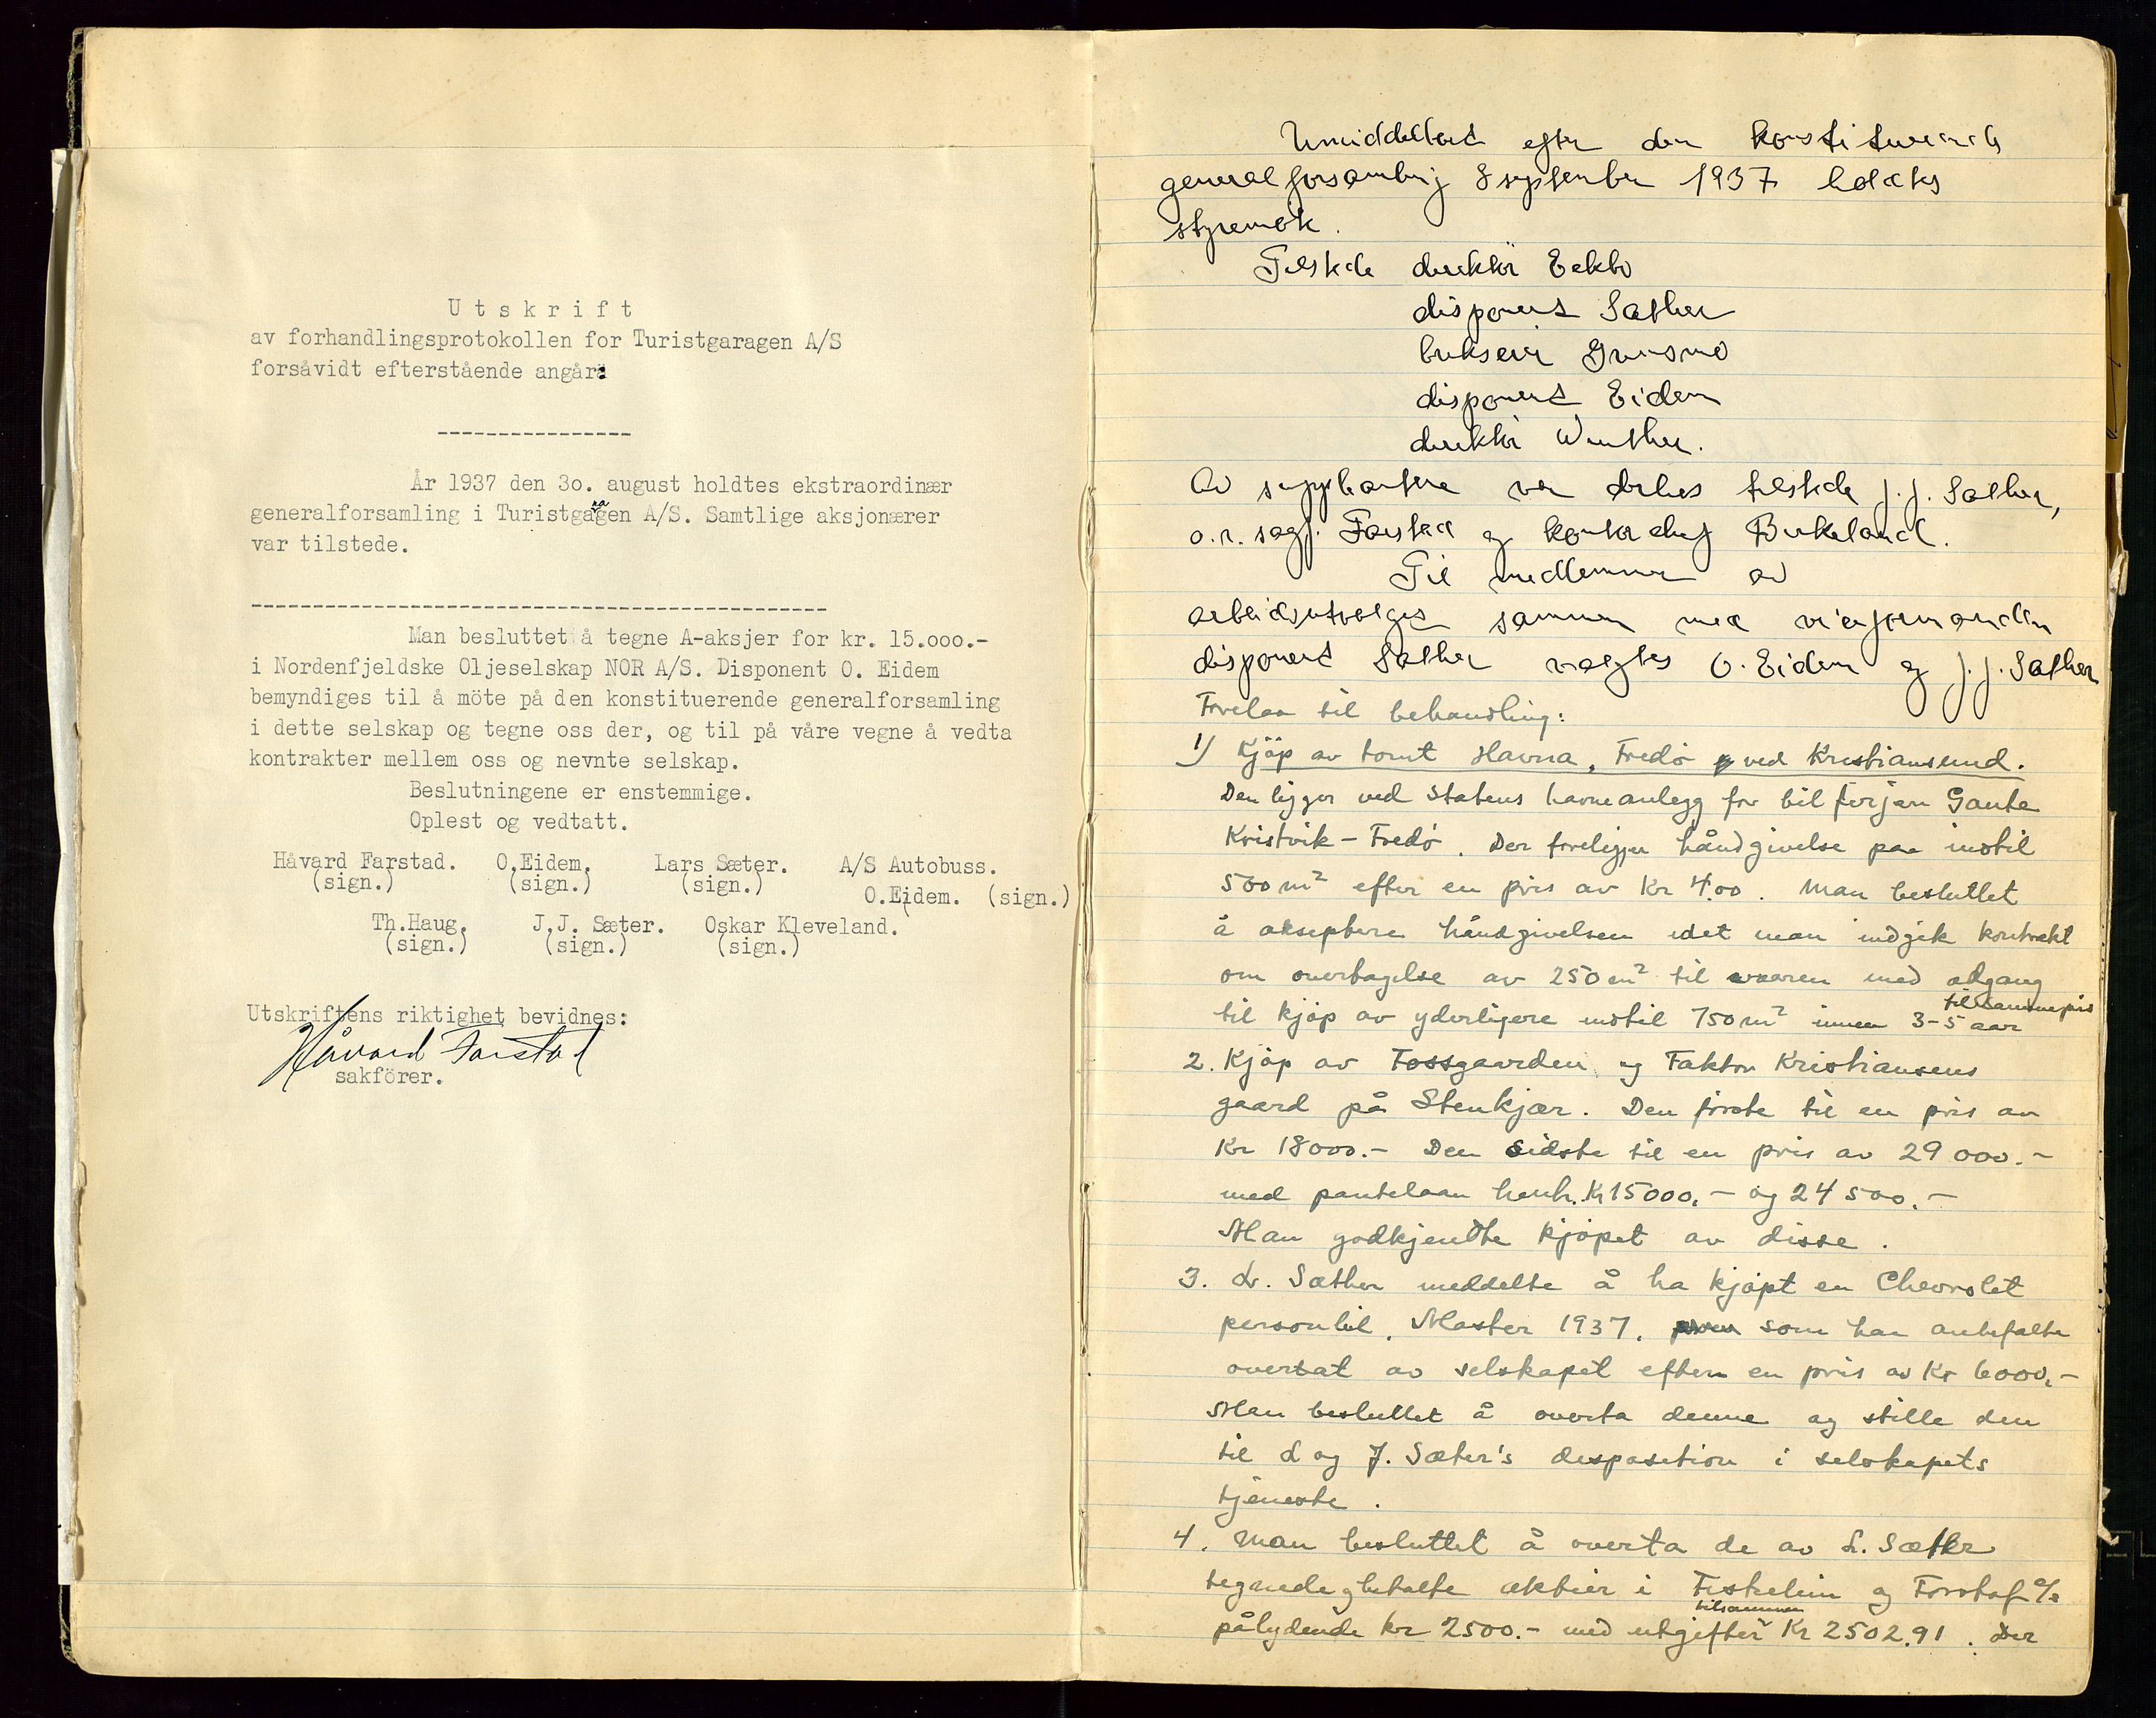 U t s k r i f t
av forhandlingsprotokollen for Turistgaragen A/S
forsåvidt efterstående angår:
----------------
År 1937 den 3o. august holdtes ekstraordinær
generalforsamling i Turistgaragen A/S. Samtlige aksjonærer
var tilstede.
------------------------------------------------
Man besluttet å tegne A-aksjer for kr. 15.ooo.-
i Nordenfjeldske Oljeselskap NOR A/S. Disponent O. Eidem
bemyndiges til å möte på den konstituerende generalforsamling
i dette selskap og tegne oss der, og til på våre vegne å vedta
kontrakter mellem oss og nevnte selskap.
Beslutningene er enstemmige.
Oplest og vedtatt.
Håvard Farstad. O.Eidem. Lars Sæter. A/S Autobuss.
(sign.) (sign.) (sign.)
O.Eidem. (sign.)
Th.Haug. J.J. Sæter. Oskar Kleveland.
(sign.) (sign.) (sign.)
Utskriftens riktighet bevidnes:
Håvard Farstad
sakförer.
Umiddelbart efter den konstituerende
generalforsamling 8 september 1937 holdtes
styremøte.
Tilstede direktør Eckbo
disponent Sæther
disponent Eidem
direktør Winther.
Av suppleantene var derhos tilstede J. J. Sæther,
o.r. sagf. Farstad og kontorchef Birkeland.
Til medlemmer av
arbeidsutvalget sammen med viceformanden
disponent Sæther valgtes O. Eidem og J. J. Sæther
Forelaa til behandling:
1) Kjøp av tomt Havna, Fredø ved Kristiansund.
Den ligger ved Statens havneanlegg for bilferjen Gaute
Kvistvik - Fredø. Der foreligger håndgivelse paa indtil
500 m² efter en pris av Kr 4.00. Man besluttet
å akseptere håndgivelsen idet man indgik kontrakt
om overtagelse av 250 m² til vaaren med adgang
til kjøp av yderligere indtil 750 m² innen 3-5 aar til samme pris
2. Kjøp av Fossgaarden og Faktor Kristiansens
gaard på Stenkjær. Den første til en pris av
Kr 18000.- Den sidste til en pris av 29 000.-
med pantelaan henh. Kr 15000.- og 24 500.-
Man godkjendte kjøpet av disse.
3. L. Sæther meddelte å ha kjøpt en Chevrolet
personbil, Master 1937, som han anbefalte
overtat av selskapet efter en pris av Kr 6000.-
Man besluttet å overta denne og stille den
til L og J. Sæter's disposition i selskapets
tjeneste.
4. Man besluttet å overta de av L. Sæther
tegnede og betalte aktier i og A/S
pålydende kr 2500.- med utgifter tilsammen Kr 2502.91. Der